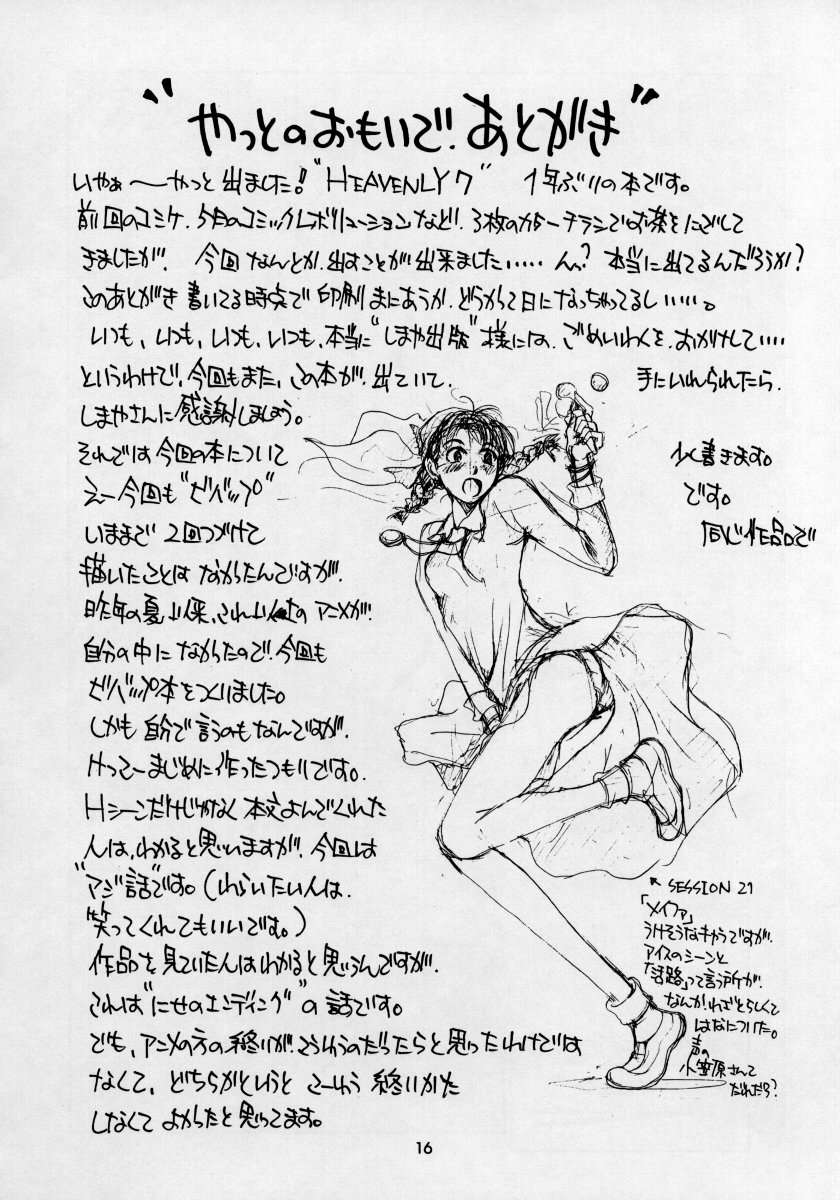 "やっとのおもいで!あとがき"
いやぁ〜やっと出ました!"HEAVENLY7" 1年ぶりの本です。
前回のコミケ、5月のコミックレボリューションなど!、3枚のカラーチラシでお茶をにごして
きましたが!今回なんとか、出すことが出来ました‥‥‥ん?本当に出てるんだろうか?
このあとがき書いてる時点で印刷まにあうか、どうかって日になっちゃってるし‥‥‥。
いつも、いつも、いつも、いつも、本当に"しまや出版"様には、ごめいわくを、おかけして‥‥
というわけで、今回もまた、この本が、出ていて、手にいれられたら、
しまやさんに感謝しましょう。
それでは今回の本について 少く書きます。
えー今回も"ビバップ" です。
いままで2回つづけて 同じ作品で
描いたことはなかったんですが、
昨年の夏以来、これ以上のアニメが!
自分の中になかったので!今回も
ビバップ本をつくりました。
しかも自分で言うのもなんですが、
けっこーまじめに作ったつもりです。
Hシーンだけじゃなく本文よんでくれた
人は、わかると思いますが、今回は
"マジ話"です。(わらいたい人は、
笑ってくれてもいいです。)
作品を見ていた人はわかると思うんですが、
これは"にせのエンディング"の話です。
でも、アニメの方の終りが、こういうのだったらと思ったわけでは
なくて、どちらかというと こーゆう終いかた
しなくてよかったと思ってます。
↖SESSION 21
「メイファ」
うけそうなキャラですが、
アイスのシーンと
「活路」って言う所が、
なんか、わざとらしくて
はなについた。
声の
小笠原さんて
だれだろ?
16